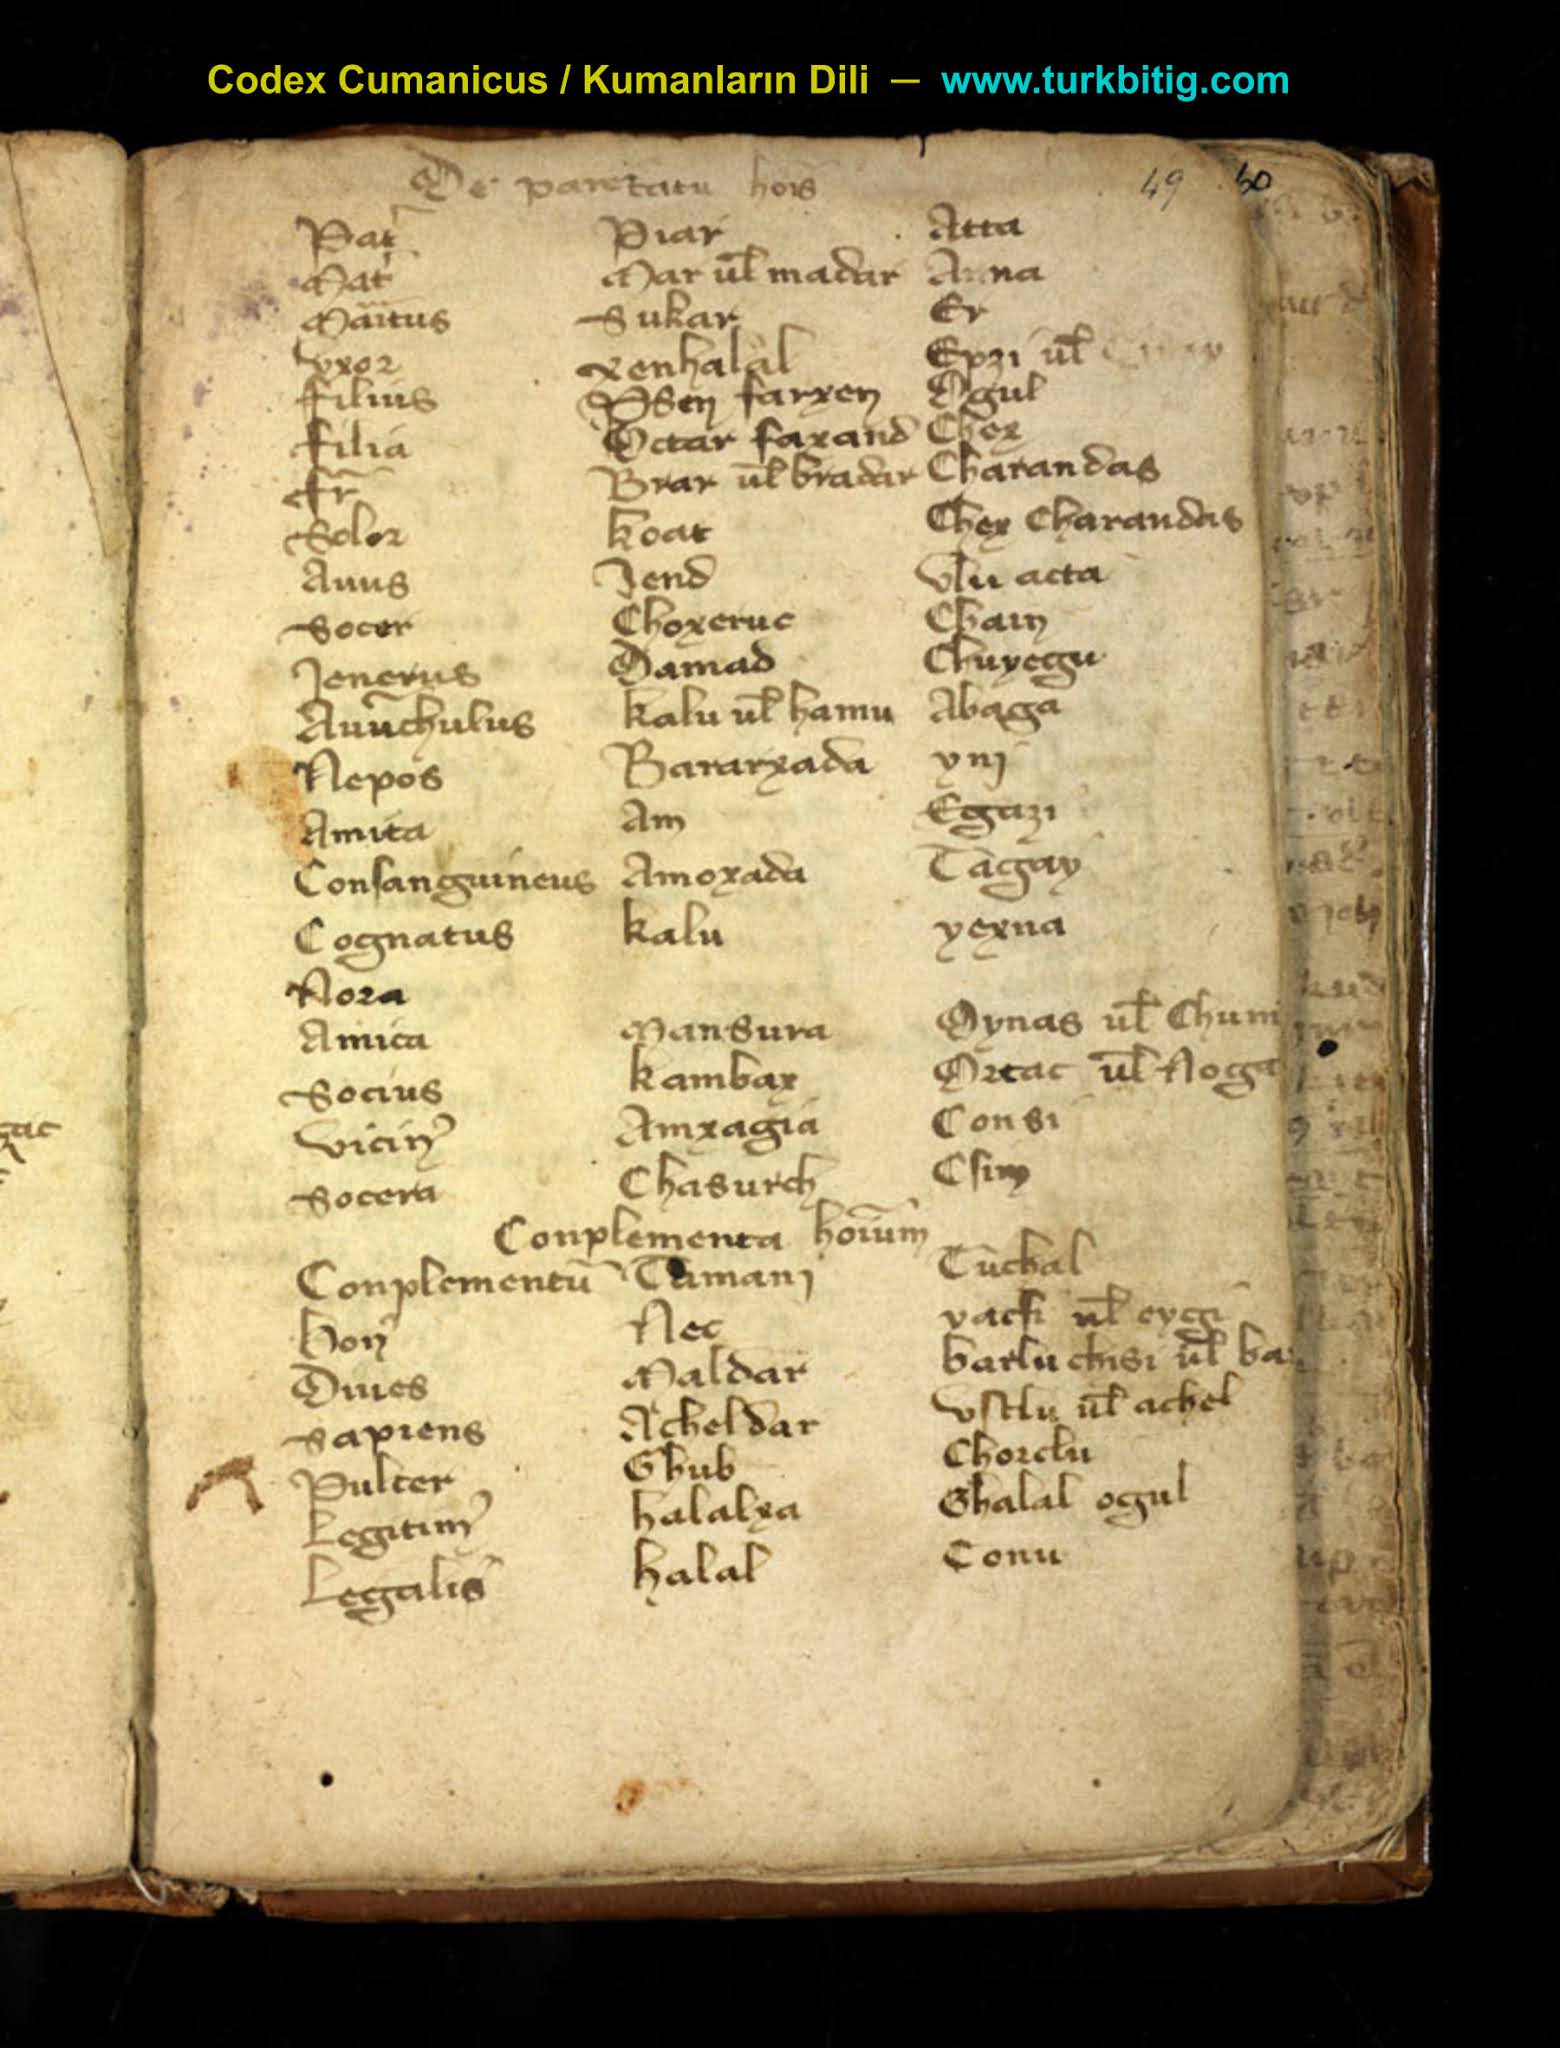 Codex Cumanicus / Kumanların Dili — www.turkbitig.com
De parētatu hoīs 49 50
Pat̄ Piar Atta
Mat̄ Mar ul̄ madar Anna
Maītus Sukar Er
Vxor xenhalal Epzi ul̄
Filius Psen farxen Ogul
Filia Octar faxand Chex
Fr̄ Brar ul̄ bradar Charandas
Soror koat Chex Charandas
Auus Jend Vlu atta
Socer Choxeruc Chain
Jenerus Damad Chuyegu
Auūchulus kalu ul̄ hamu Abaga
Nepos Bararxada ynj
Amita Am Egazi
Consanguineus Amoxada Tagay
Cognatus kalu yexna
Nora
Amica Mansura Oynas ul̄ Chuni
Socius kambax Ortac ul̄ Noga
Vicin᾽ Amxagia Consi
Socera Chasurch Csim
Conplementa hoīum
Conplementū Tamanj Tuchal
Bon᾽ Nec yacsi ul̄ eygi
Diues Maldar barlu chisi ul̄ ba
Sapiens Acheldar vstlu ul̄ achel
Pulcer Ghub Chorclu
Legitim᾽ halalxa Ghalal ogul
Legalis halal Conu